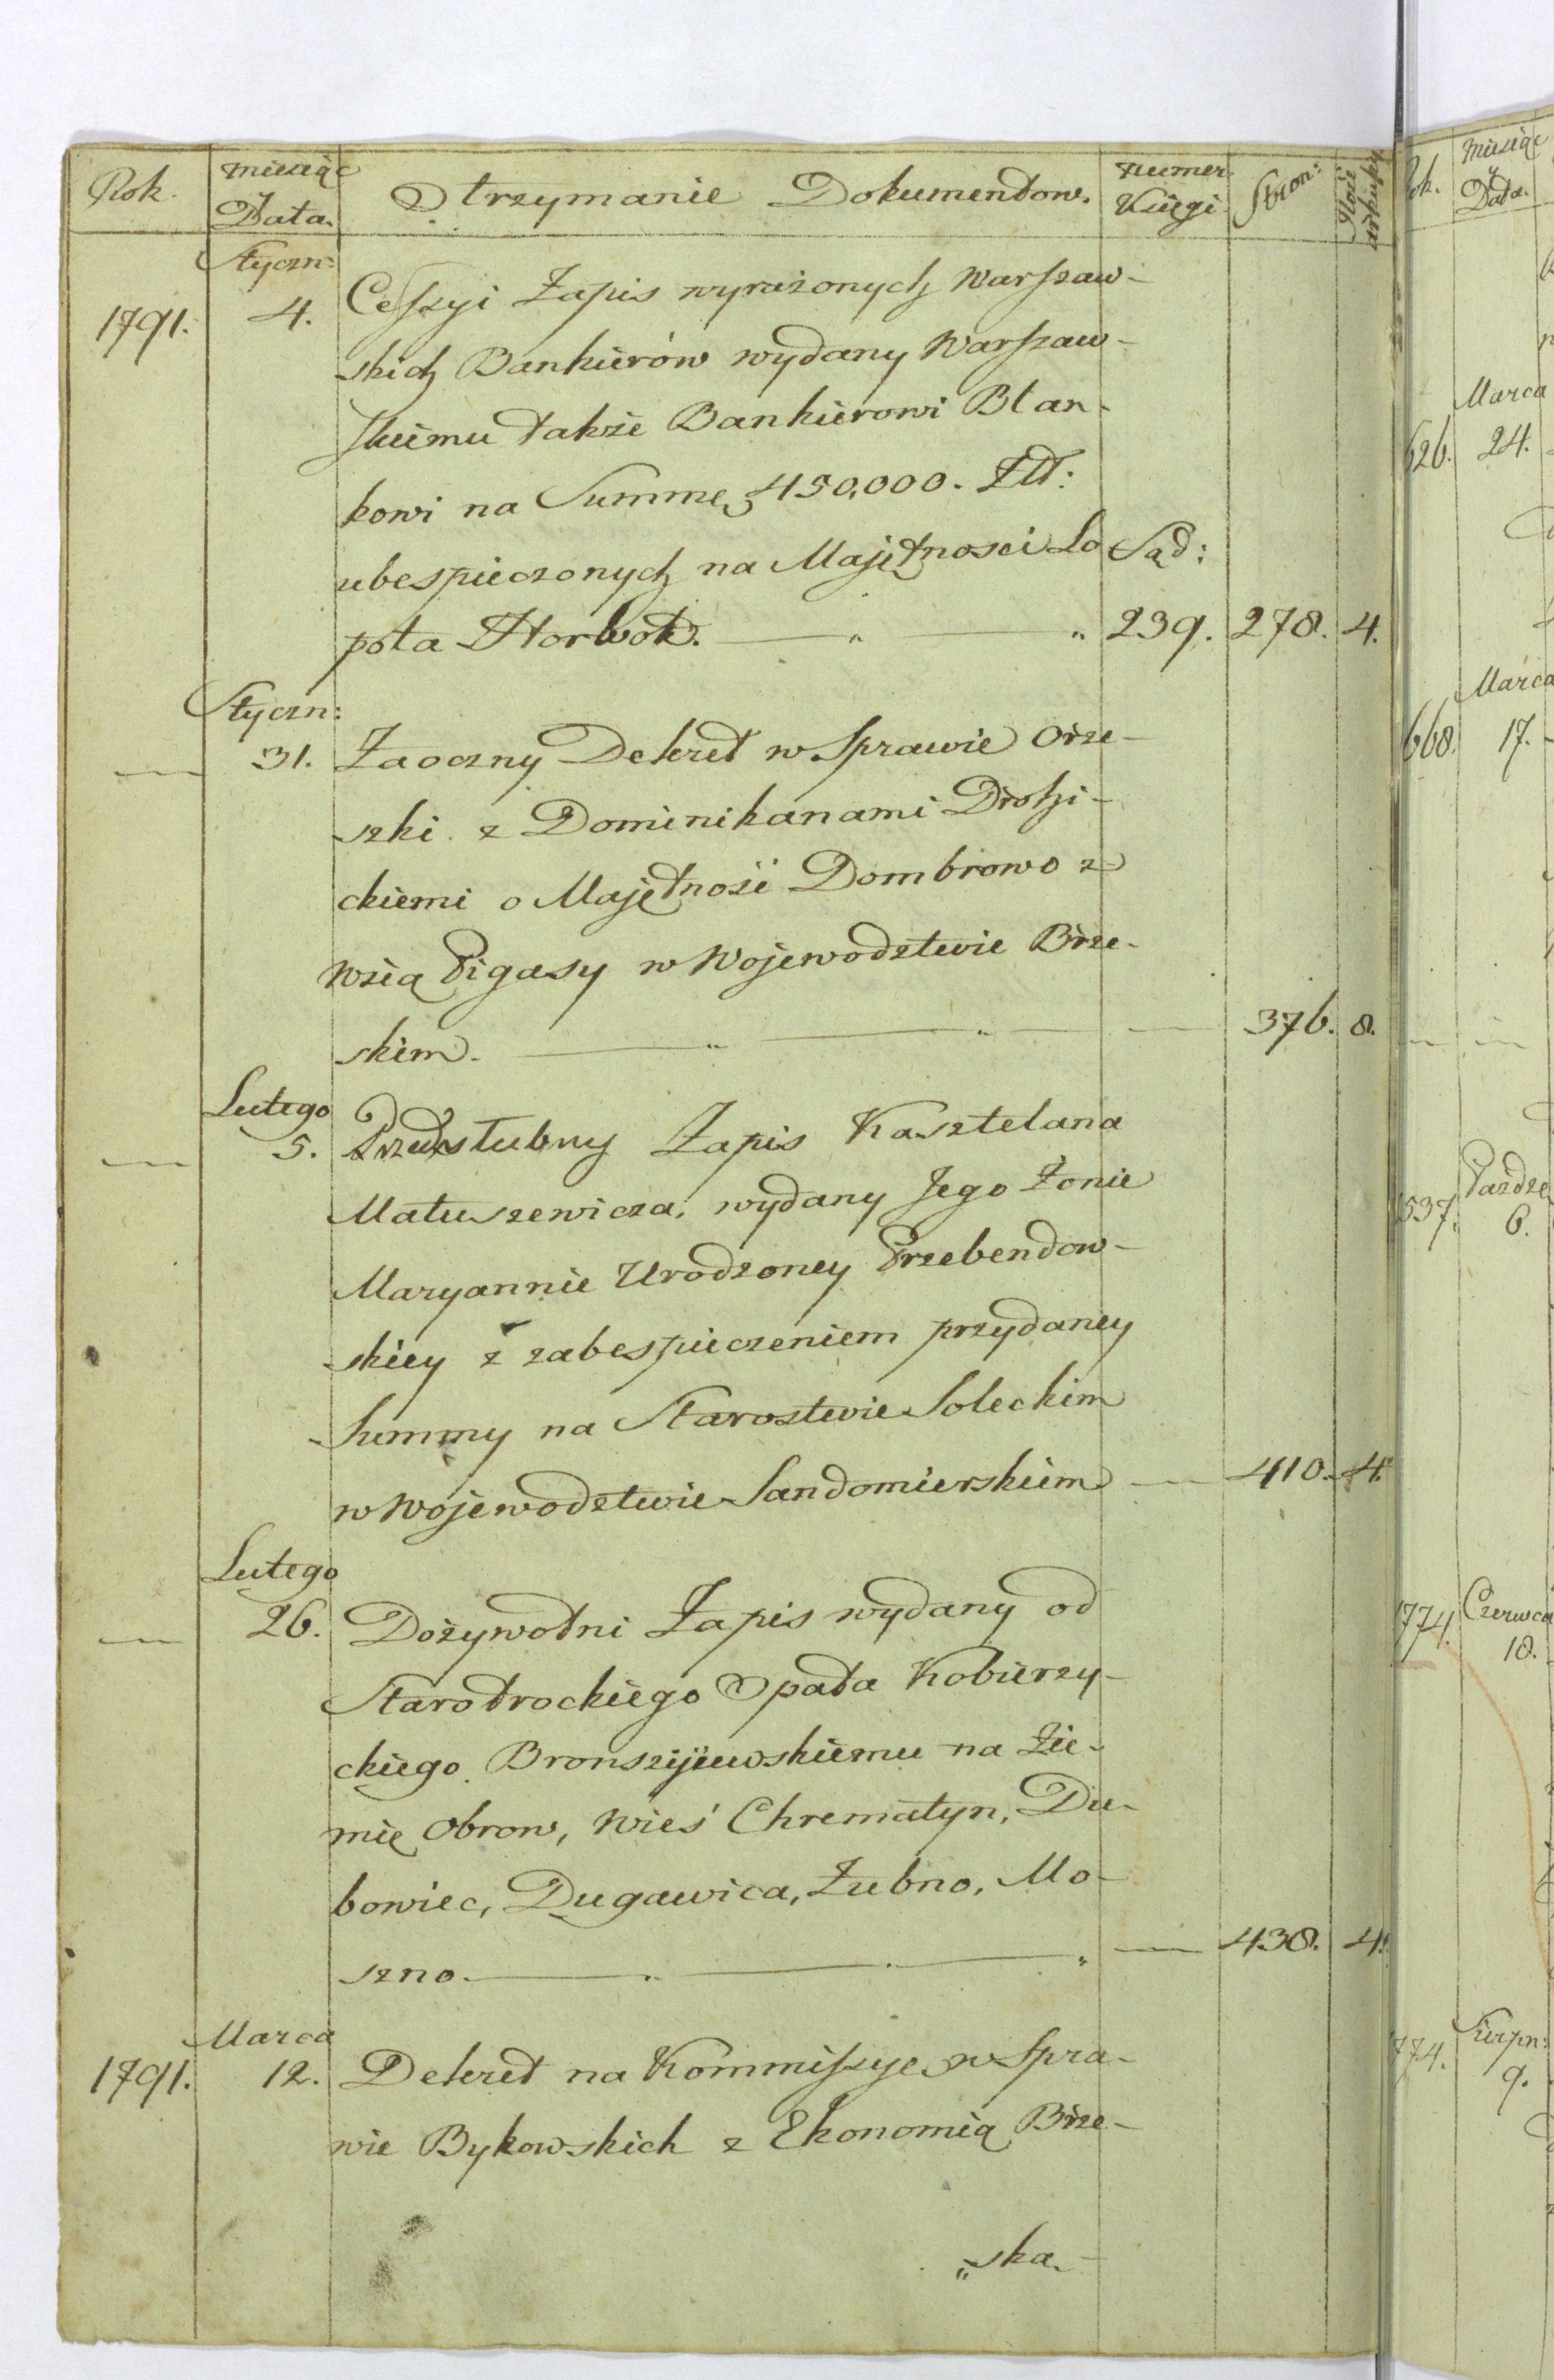 Rok. Miesiąc y Data. Otrzymanie Dokumentow. Numer Księgi Stron: Ilość arkuszy
Styczn:
1791. 4. Cessyi Zapis wyrażonych Warszaw-
skich Bankierów wydany Warszaw-
skiemu także Bankierowi Blan-
kowi na Summę 450,000. Złł:
ubespieczonych na Majętnosci Ło Sąd:
pota Horwot. — " — " 239. 278. 4.
Styczn:
— 31. Zaoczny Dekret w Sprawie Orze-
szki z Dominikanami Drohi-
ckiemi o Majętność Dombrowo z
Wsią Pigasy w Wojewodztwie Brze-
skim. — " — " — 376. 8.
Lutego
— 5. Przedslubny Zapis Kasztelana
Matuszewicza, wydany Jego Żonie
Maryannie Urodzoney Przebendow-
skiey z zabespieczeniem przydaney
Summy na Starostwie Soleckim
w Wojewodztwie Sandomierskiem — 410. 4.
Lutego
— 26. Dożywotni Zapis wydany od
Starotrockiego Opata Kobierzy-
ckiego Bronszijewskiemu na Zie-
mię Obrow, Wieś Chrematyn, Du-
bowiec, Dugawica, Żubno, Mo-
szno. — " — " — 438. 4.
Marca
1791. 12. Dekret na Kommissyę w Spra-
wie Bykowskich z Ekonomią Brze-
„ska-
Rok. Miesiąc y Data.
Marca
626. 24.
Marca
668. 17.
Paździe
537. 6.
1774. Czerwca
18.
774. Sierpn:
9.